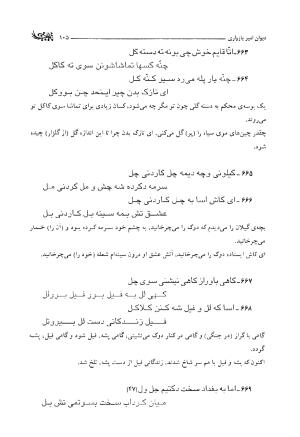 دیوان امیر پازواری
۱۰۵
۶۶۳-اتّا قایم خوش چی بونه ته دسته کل
چنّه کسها تماشا شونن سوی ته کاکل
۶۶۴-چنّه یار پله می رد سیو کنّه کل
ای نازک بدن چیر اینحد چن بوو کل
یک بوسه‌ی محکم به دسته گلی چون تو مگر چه می‌شود، کسان زیادی برای تماشای کاکل تو
می‌روند.
چقدر چین‌های موی سیاه را (پر) گل می‌کنی، ای نازک بدن چرا تا این اندازه گل (از گلزار) چیده
شود.
۶۶۵-کیلونی وچه دیمه چل کاردنی چل
سرمه دکرده شه چش و مل کردنی مل
۶۶۶-ای کاش اسا به چل کاردنی چل
عشق تش بمه سینه بل کاردنی بل
بچه‌ی گیلان را می‌دیدم که دوک را می‌چرخانید، به چشم خود سرمه کرده بود و (آن را) خمار
می‌چرخانید.
ای کاش ایستاده دوک را می‌چرخانید، آتش عشق او درون سینه‌ام شعله (خود) را می‌چرخانید.
۶۶۷-گاهی باوراز گاهی نیشنی سوی چل
گهی لل به فیل بوز فیل بزو لل
۶۶۸-اسا که لل و فیل شه کنن کلاکل
فیل زندگانی دست لل بیوو تل
گاهی با گراز (در جنگی) و گاهی در کنار دوک می‌نشینی، گاهی پشه به فیل زد و گاهی فیل، پشه
گردد.
اکنون که پشه و فیل با هم سر شاخ شدند، زندگانی فیل از دست پشه، تلخ شد.
۶۶۹-اما به بغداد سخت دکتیم چل ول(۴۷)
میان کرداب سخت بسوتمی تش بل